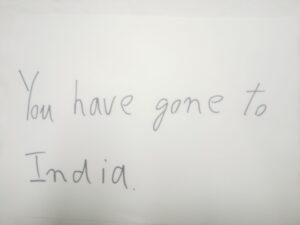 You have gone to
India.